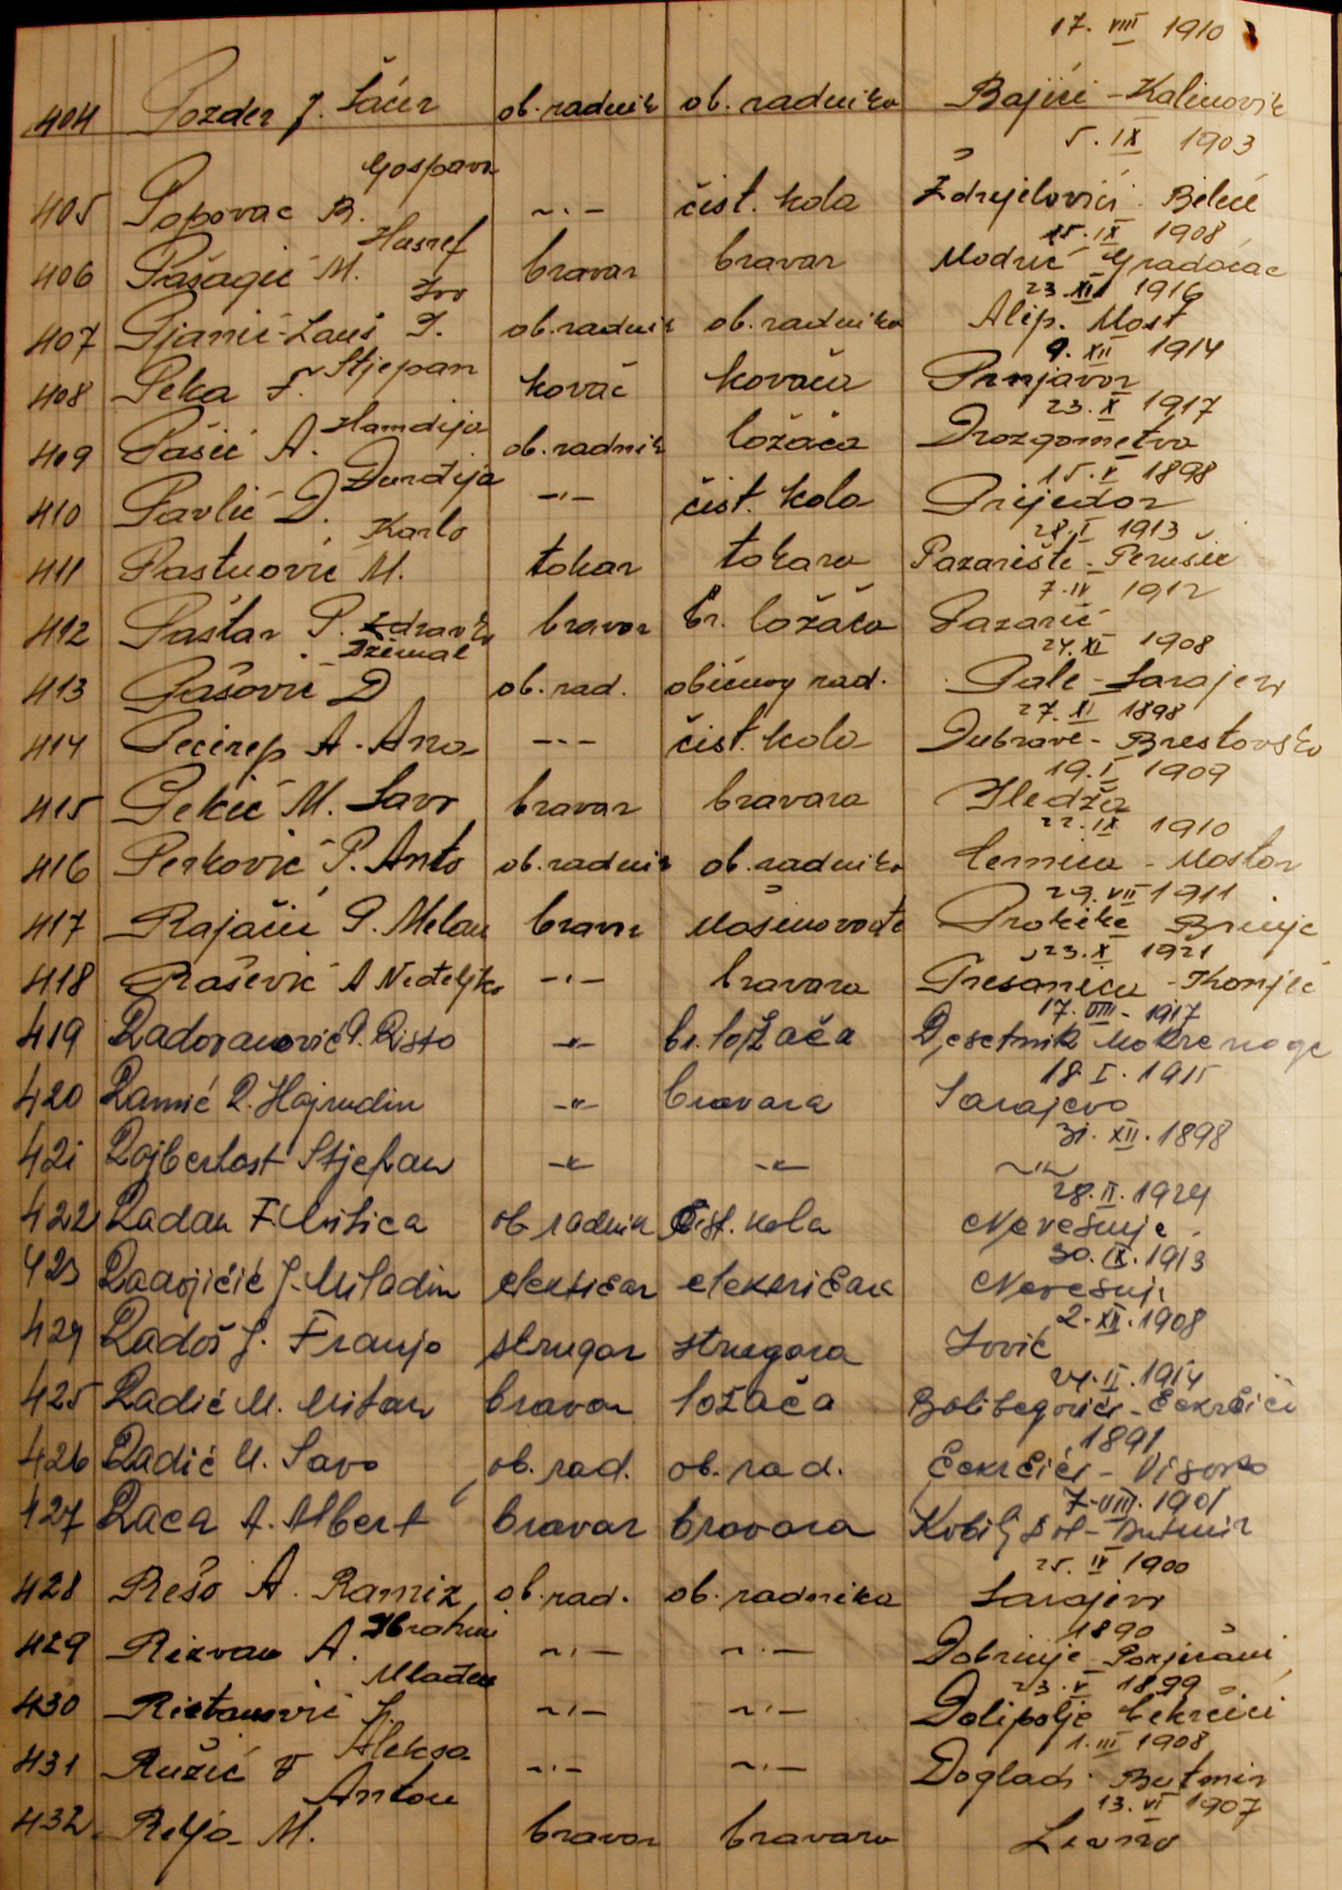 17. VIII 1910
404 Pozder J. Šaćir ob. radnik ob. radnika Bajići - Kalinovik
5. IX 1903
405 Popovac B. Gospava -·- čist. kola Ždrijelovići Bileće
15. IX 1908
406 Pašagić M. Husref bravar bravar Modrić Gradačac
23. XII 1916
407 Pjanić-Lauš I. Ivo ob. radnik ob. radnika Alip. Most
9. XII 1914
408 Peka F. Stjepan kovač kovača Prnjavor
23. X 1917
409 Pašić A. Hamdija ob. radnik ložača Drozgometva
15. X 1898
410 Pavlić D. Đurđija -·- čist. kola Prijedor
28. I 1913
411 Pastuović M. Karlo tokar tokara Pazarište - Perušić
7. IV 1912
412 Paštar P. Zdravko bravar br. ložača Pazarić
24. XI 1908
413 Pašović D Džemal ob. rad. običnog rad. Pale - Sarajevo
27. XI 1898
414 Pecirep A. Ana -·- čist. kola Dubrave - Brestovsko
19. I 1909
415 Pekić M. Savo bravar bravara Iledža
22. IX 1910
416 Perković P. Anto ob. radnik ob. radnika Cernica - Mostar
29. VII 1911
417 Rajačić P. Milan bravar mašinovođe Prokike Brinje
23. X 1921
418 Rašević A Neđeljko -·- bravara Tresanica - Konjic
17. VIII - 1917
419 Radovanović P. Risto -"- br. ložača Djesetnik Mokronoge
18 I. 1915
420 Ramić R. Hajrudin -"- bravara Sarajevo
31. XII. 1898
421 Rojbertost Stjepan -"- -"- -"-
28. II. 1924
422 Radan F. Mitica ob radnik čist. kola Nevesinje
30. IX. 1913
423 Radojičić J. Miladin električar električara Nevesinje
2. XII. 1908
424 Radoš J. Franjo strugar strugara Jović
24. II. 1914
425 Radić M. Mitar bravar ložača Balibegovići - Čekrčići
1891
426 Radić M. Savo ob. rad. ob. rad. Čekrčići - Visoko
7. VIII. 1901
427 Raca A. Albert bravar bravara Kobilj Dol - Butmir
25. IV 1900
428 Rešo A. Ramiz ob. rad. ob. radnika Sarajevo
1890
429 Rizvan A. Ibrahim -·- -·- Dobrinje Porječani
23. V 1899
430 Ristanović J. Mlađen -·- -·- Dolipolje Čekrčići
1. III 1908
431 Ružić V Aleksa -·- -·- Dogladi Butmir
13. VI 1907
432 Relja M. Anton bravar bravara Livno